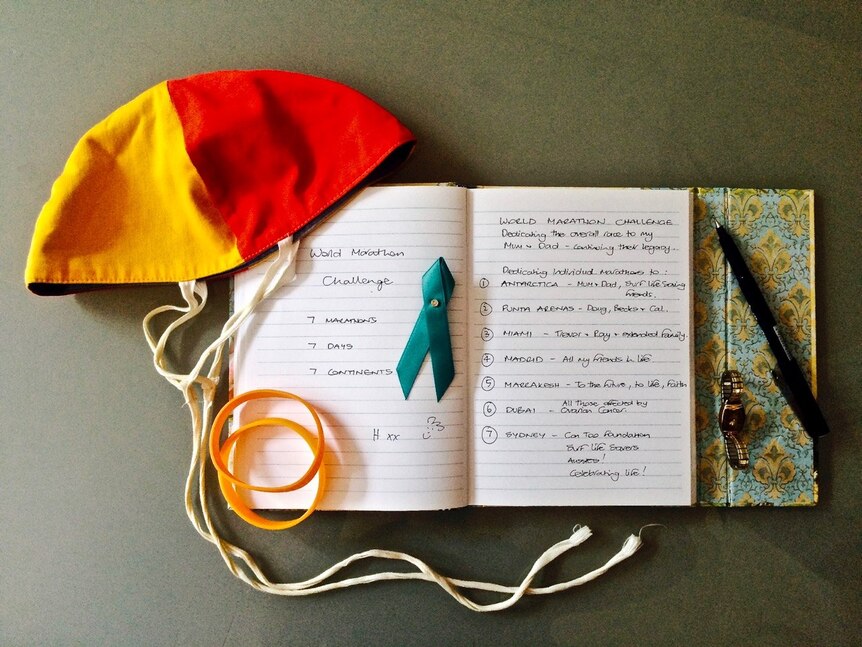 World Marathon
Challenge
7 MARATHONS
7 DAYS
7 CONTINENTS
H xx
WORLD MARATHON CHALLENGE
Dedicating the overall race to my
Mum + Dad - continuing their legacy...
Dedicating individual marathons to :
1 ANTARCTICA - Mum + Dad, Surf Life Saving
friends.
2 PUNTA ARENAS - Doug, Becks + Cal.
3 MIAMI - Trevor + Ray + extended family.
4 MADRID - All my friends in life.
5 MARRAKESH - To the future, to life, faith
6 DUBAI - All those affected by
Ovarian Cancer.
7 SYDNEY - Can Too Foundation
Surf Life Savers
Aussies!
Celebrating life!